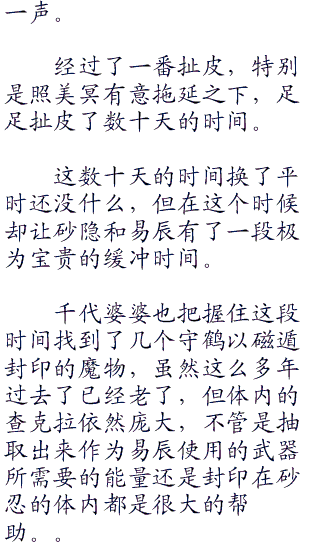 一声。
经过了一番扯皮，特别
是照美冥有意拖延之下，足
足扯皮了数十天的时间。
这数十天的时间换了平
时还没什么，但在这个时候
却让砂隐和易辰有了一段极
为宝贵的缓冲时间。
千代婆婆也把握住这段
时间找到了几个守鹤以磁遁
封印的魔物，虽然这么多年
过去了已经老了，但体内的
查克拉依然庞大，不管是抽
取出来作为易辰使用的武器
所需要的能量还是封印在砂
忍的体内都是很大的帮
助。。